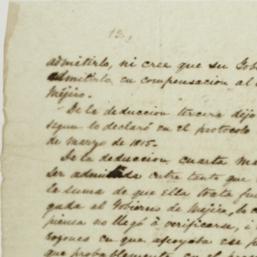 13.
admitirlo, ni cree que su Gob
admitirlo en compensacion al
Méjico.
De la deduccion tercera dijo
segun lo declaró en el protocolo
de marzo de 1815.
De la deduccion cuarta ma
ser admitida entre tanto que
la suma de que ella trata fue
gada al Gobierno de Mejico, la c
piensa no llegó á verificarse, i
razones en que apoyaba ese p
que probablemente en el